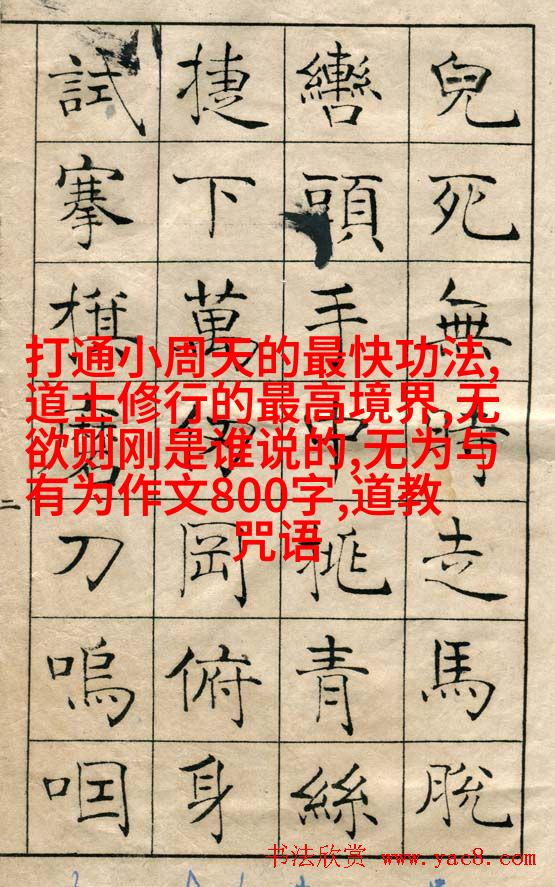 兒死無時走馬脫
轡頭手中挑青絲
捷下萬仞岡俯身
試搴旗磨刀嗚咽
二
打通小周天的最快功法,
道士修行的最高境界,无
欲则刚是谁说的,无为与
有为作文800字,道教
咒语
书法欣赏 www.yac8.com